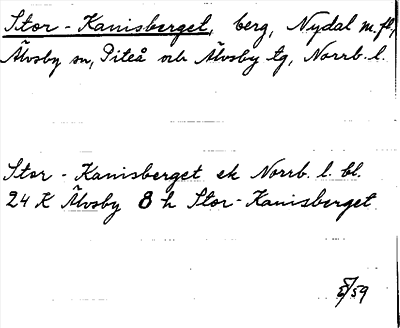 Stor-Kanisberget, berg, Nydal m.fl.,
Älvsby sn, Piteå och Älvsby tg, Norrb. l.
Stor-Kanisberget ek Norrb. l. bl.
24 K Älvsby 8 h Stor-Kanisberget
/59